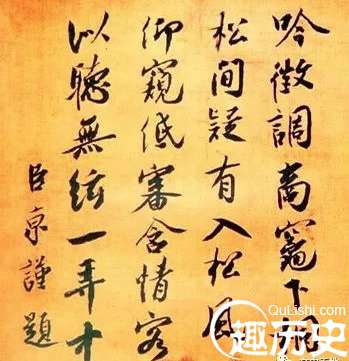 吟徵調商竈下桐
松間疑有入松風
仰窺低審含情客
似聽無絃一弄中
臣京謹題
QuLishi.com
趣历史